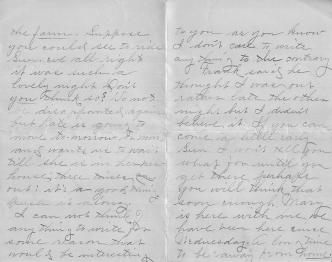 the farm. Suppose
you could see to ride
Sun. red all right
it was such a
lovely night. Don't
you think so? Do not
be disappointed again
but Kate is going to
move to-morrow
and wants me to wait
till she is in her new
house, three times
out! it's a good thing
is a loving
I can not think of
any thing to write for
some reason that
would be interesting
to you as you know
I don't care to write
any thing to the contrary
Frank said he
thought I was out
rather late the other
night but I didn't
believe it. If you can
come a little early
Sun I won't tell you
what for until you
get there perhaps
you will think that
soon enough. Mary
is here with me, we
have been here since
Wednesday a long time
to be away from home